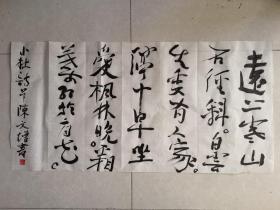 遠上寒山
石徑斜。白雲
生處有人家。
停車坐
愛楓林晚。霜
葉红於二月花
小杜詩 陳文增書